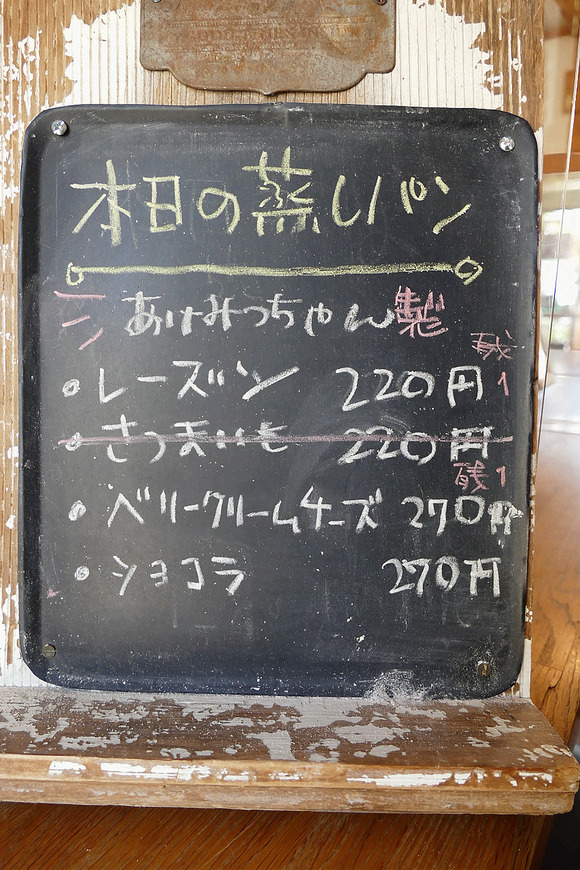 本日の蒸しパン
あけみっちゃん製
・レーズン 220円 残1
・さつまいも 220円
・ベリークリームチーズ 270円 残1
・ショコラ 270円